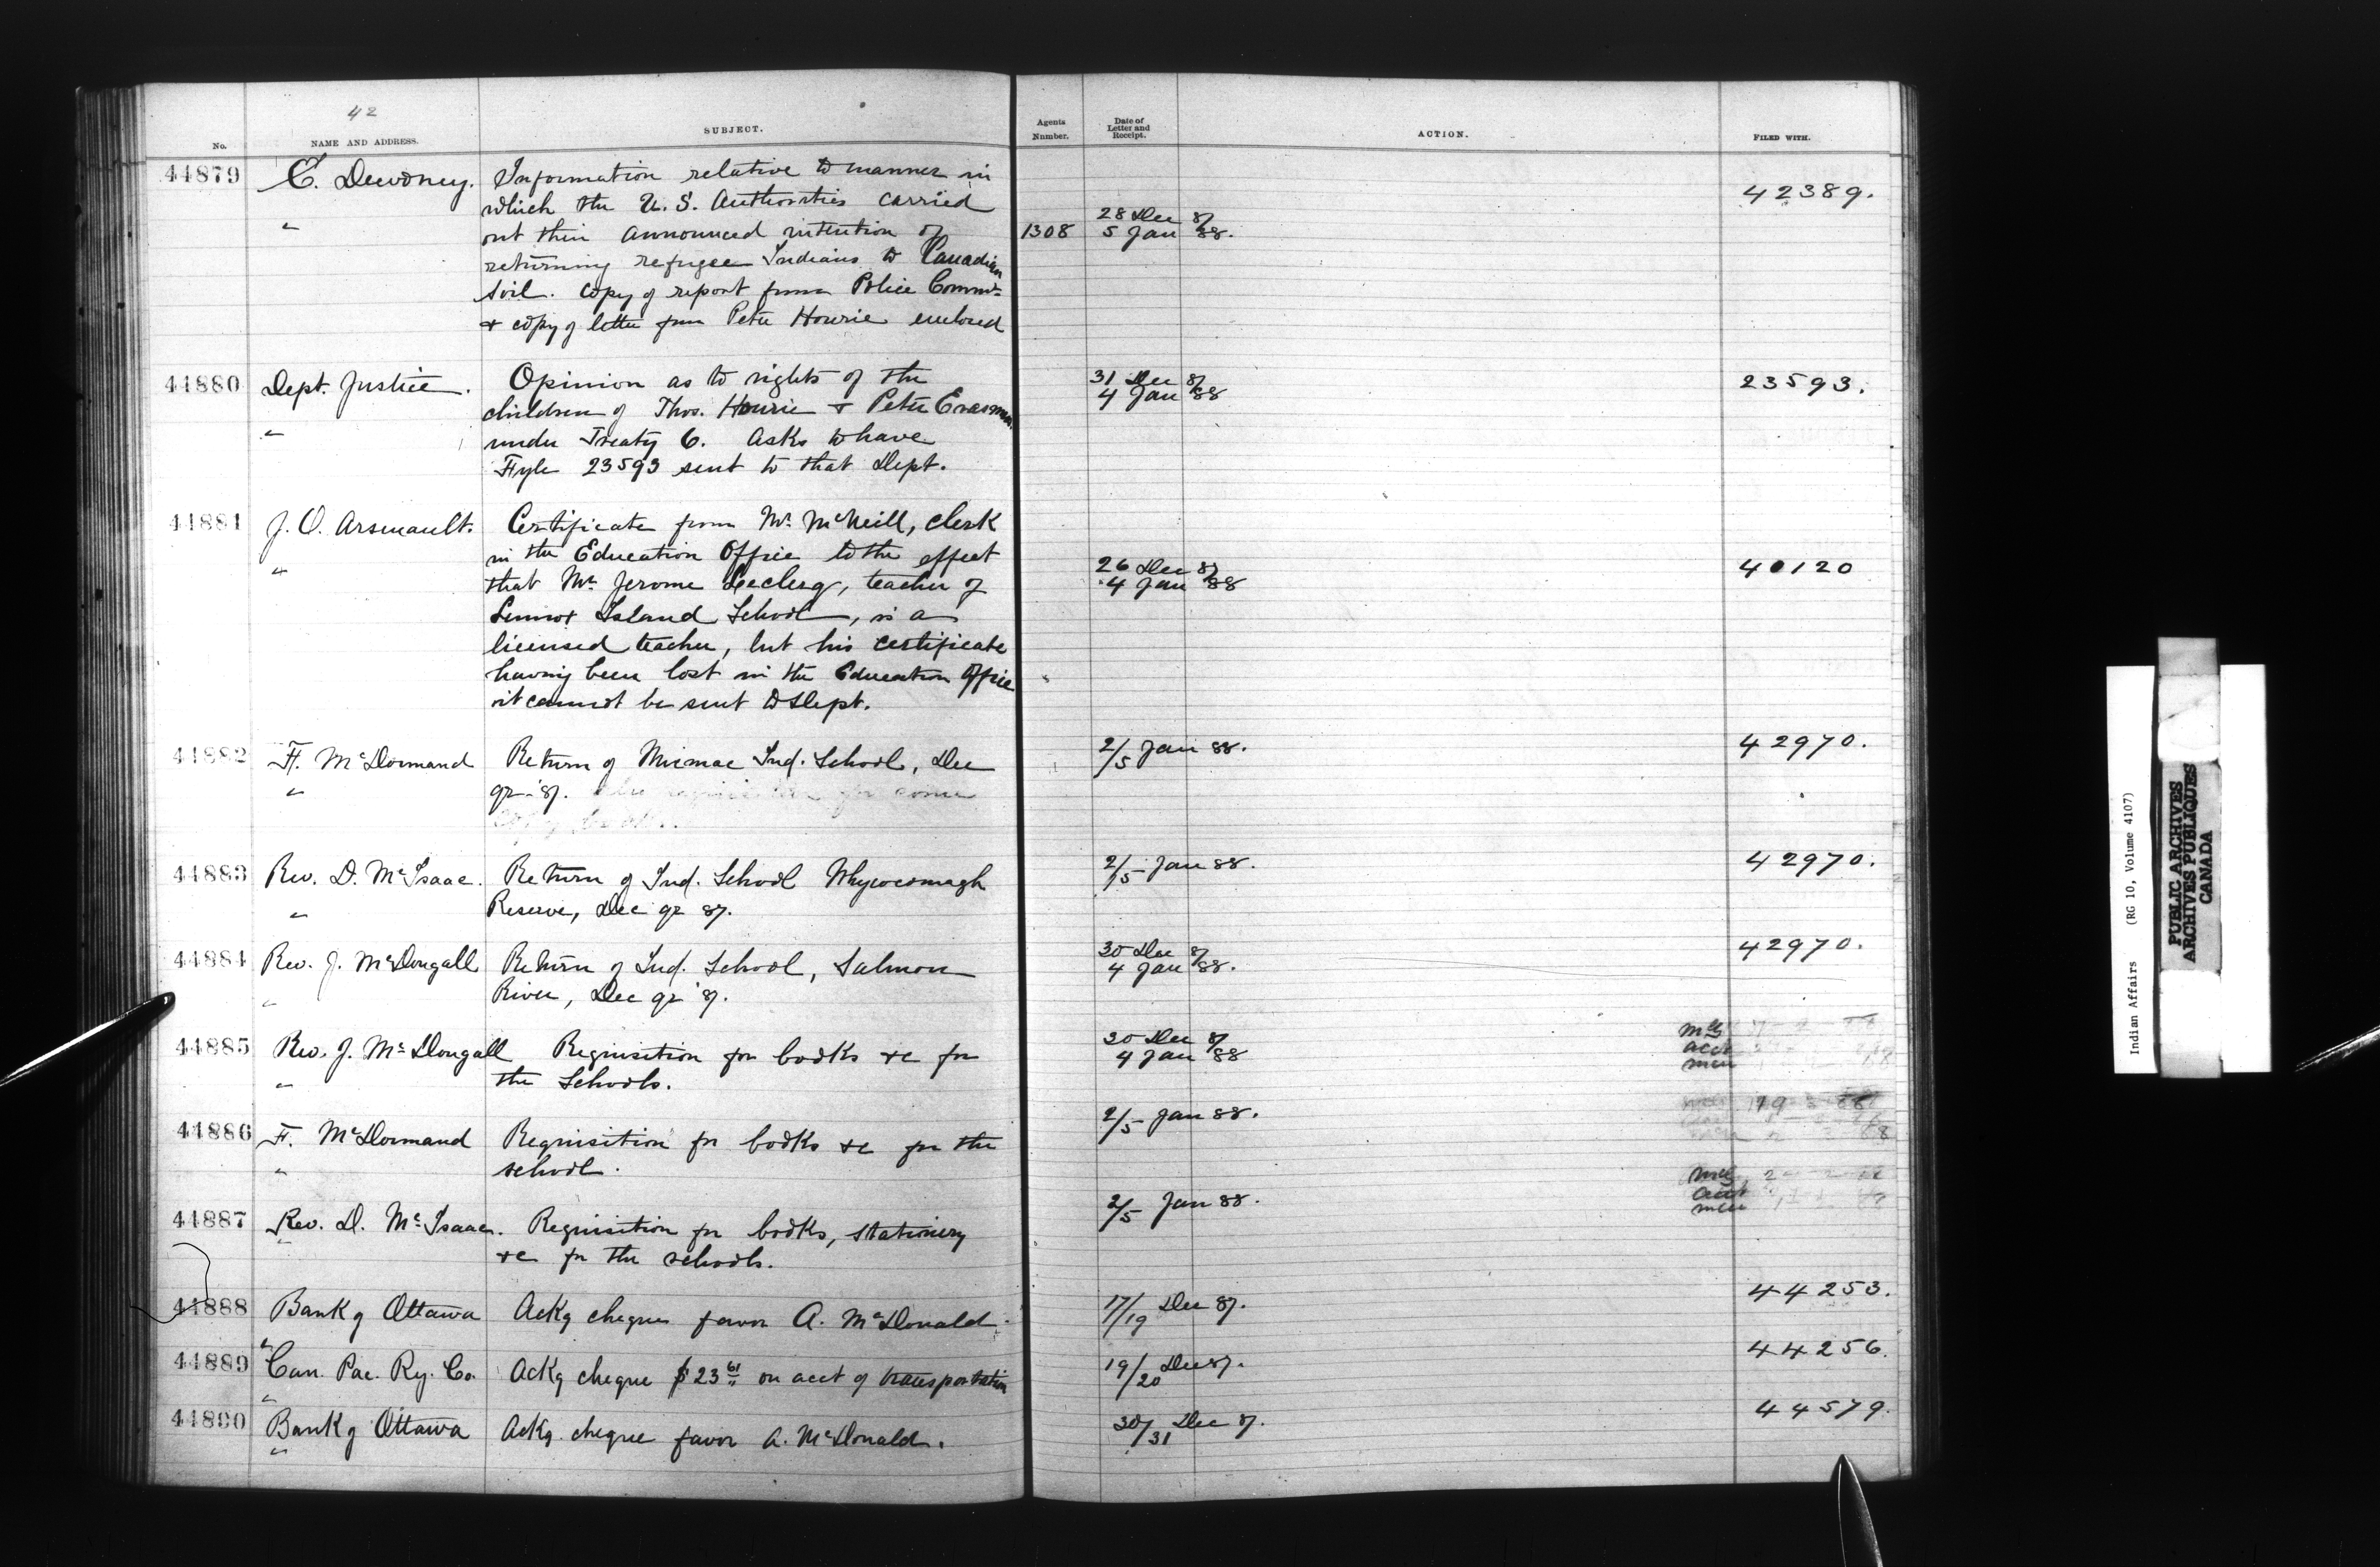 42
No. NAME AND ADDRESS. SUBJECT. Agents Number. Date of Letter and Receipt. ACTION. FILED WITH.
44879 E. Dewdney. Information relative to manner in
which the U.S. Authorities carried 42389.
" out their announced intention of 1308 28 Dec 87
returning refugee Indians to Canadian 5 Jan 88.
soil. Copy of report from Police Commr
& copy of letter from Peter Hourie enclosed
44880 Dept. Justice. Opinion as to rights of the 31 Dec 87 23593.
children of Thos. Hourie & Peter Erasmus 4 Jan 88
" under Treaty 6. Asks to have
Fyle 23593 sent to that Dept.
44881 J. O. Arsenault. Certificate from Mr. McNeill, Clerk
in the Education Office to the effect
" that Mr. Jerome Leclerg, teacher of 26 Dec 87 40120
Lennox Island School, is a 4 Jan 88
licensed teacher, but his certificate
having been lost in the Education Office
it cannot be sent to Dept.
44882 F. McDormand Return of Micmac Ind. School, Dec 2/5 Jan 88. 42970.
" qr. 87. requisition for some
44883 Rev. D. McIsaac. Return of Ind. School Whycocomagh 2/5 Jan 88. 42970.
" Reserve, Dec qr 87.
44884 Rev. J. McDougall Return of Ind. School, Salmon 30 Dec 87 42970.
" River, Dec qr '87. 4 Jan 88.
44885 Rev. J. McDougall Requisition for books &c for 30 Dec 87
" the Schools. 4 Jan 88
44886 F. McDormand Requisition for books &c for the 2/5 Jan 88.
" school.
44887 Rev. D. McIsaac. Requisition for books, stationery 2/5 Jan 88.
" &c for the schools.
44888 Bank of Ottawa Ackg cheque favor A. McDonald. 17/19 Dec 87. 44253.
"
44889 Can. Pac. Ry. Co. Ackg cheque $23 61 on acct of transportation 19/20 Dec 87. 44256.
"
44890 Bank of Ottawa Ackg. cheque favor A. McDonald. 30/31 Dec 87. 44579.
"
Indian Affairs (RG 10, Volume 4107)
PUBLIC ARCHIVES
ARCHIVES PUBLIQUES
CANADA